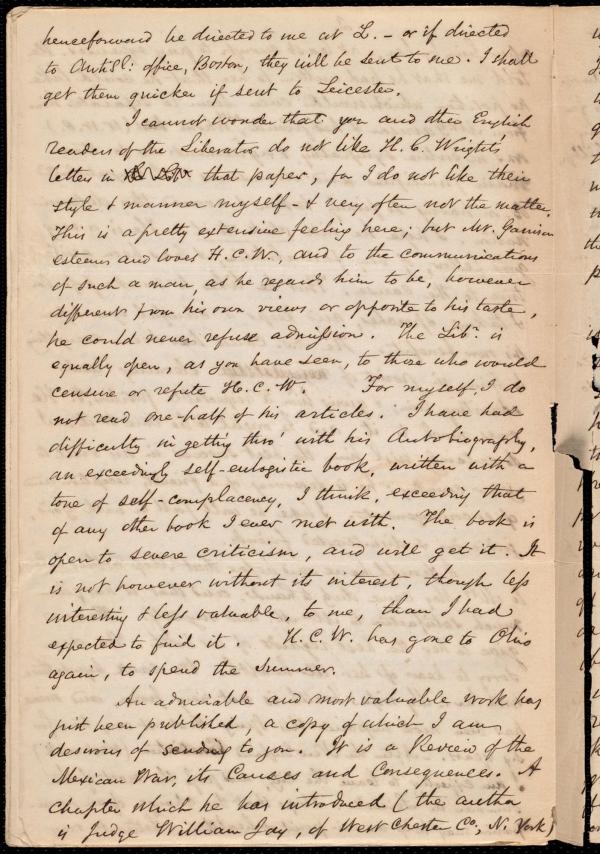 henceforward be directed to me at L. - or if directed
to Anti Sl: office, Boston, they will be sent to me. I shall
get them quicker if sent to Leicester.
I cannot wonder that you and other English
readers of the Liberator do not like H. C. Wright's
letters in that paper, for I do not like their
style & manner myself - & very often not the matter.
This is a pretty extensive feeling here; but Mr. Garrison
esteems and loves H. C. W., and to the communications
of such a man, as he regards him to be, however
different from his own views or opposite to his taste,
he could never refuse admission. The Libr. is
equally open, as you have seen, to those who would
censure or refute H. C. W. For myself, I do
not read one-half of his articles. I have had
difficulty in getting thro' with his Autobiography,
an exceedingly self-eulogistic book, written with a
tone of self-complacency, I think, exceeding that
of any other book I ever met with. The book is
open to severe criticism, and will get it. It
is not however without its interest, though less
interesting & less valuable, to me, than I had
expected to find it. H. C. W. has gone to Ohio
again, to spend the summer.
An admirable and most valuable work has
just been published, a copy of which I am
desirous of sending to you. It is a Review of the
Mexican War, its Causes and Consequences. A
chapter which he has introduced (the author
is Judge William Jay, of West Chester Co, N. York)